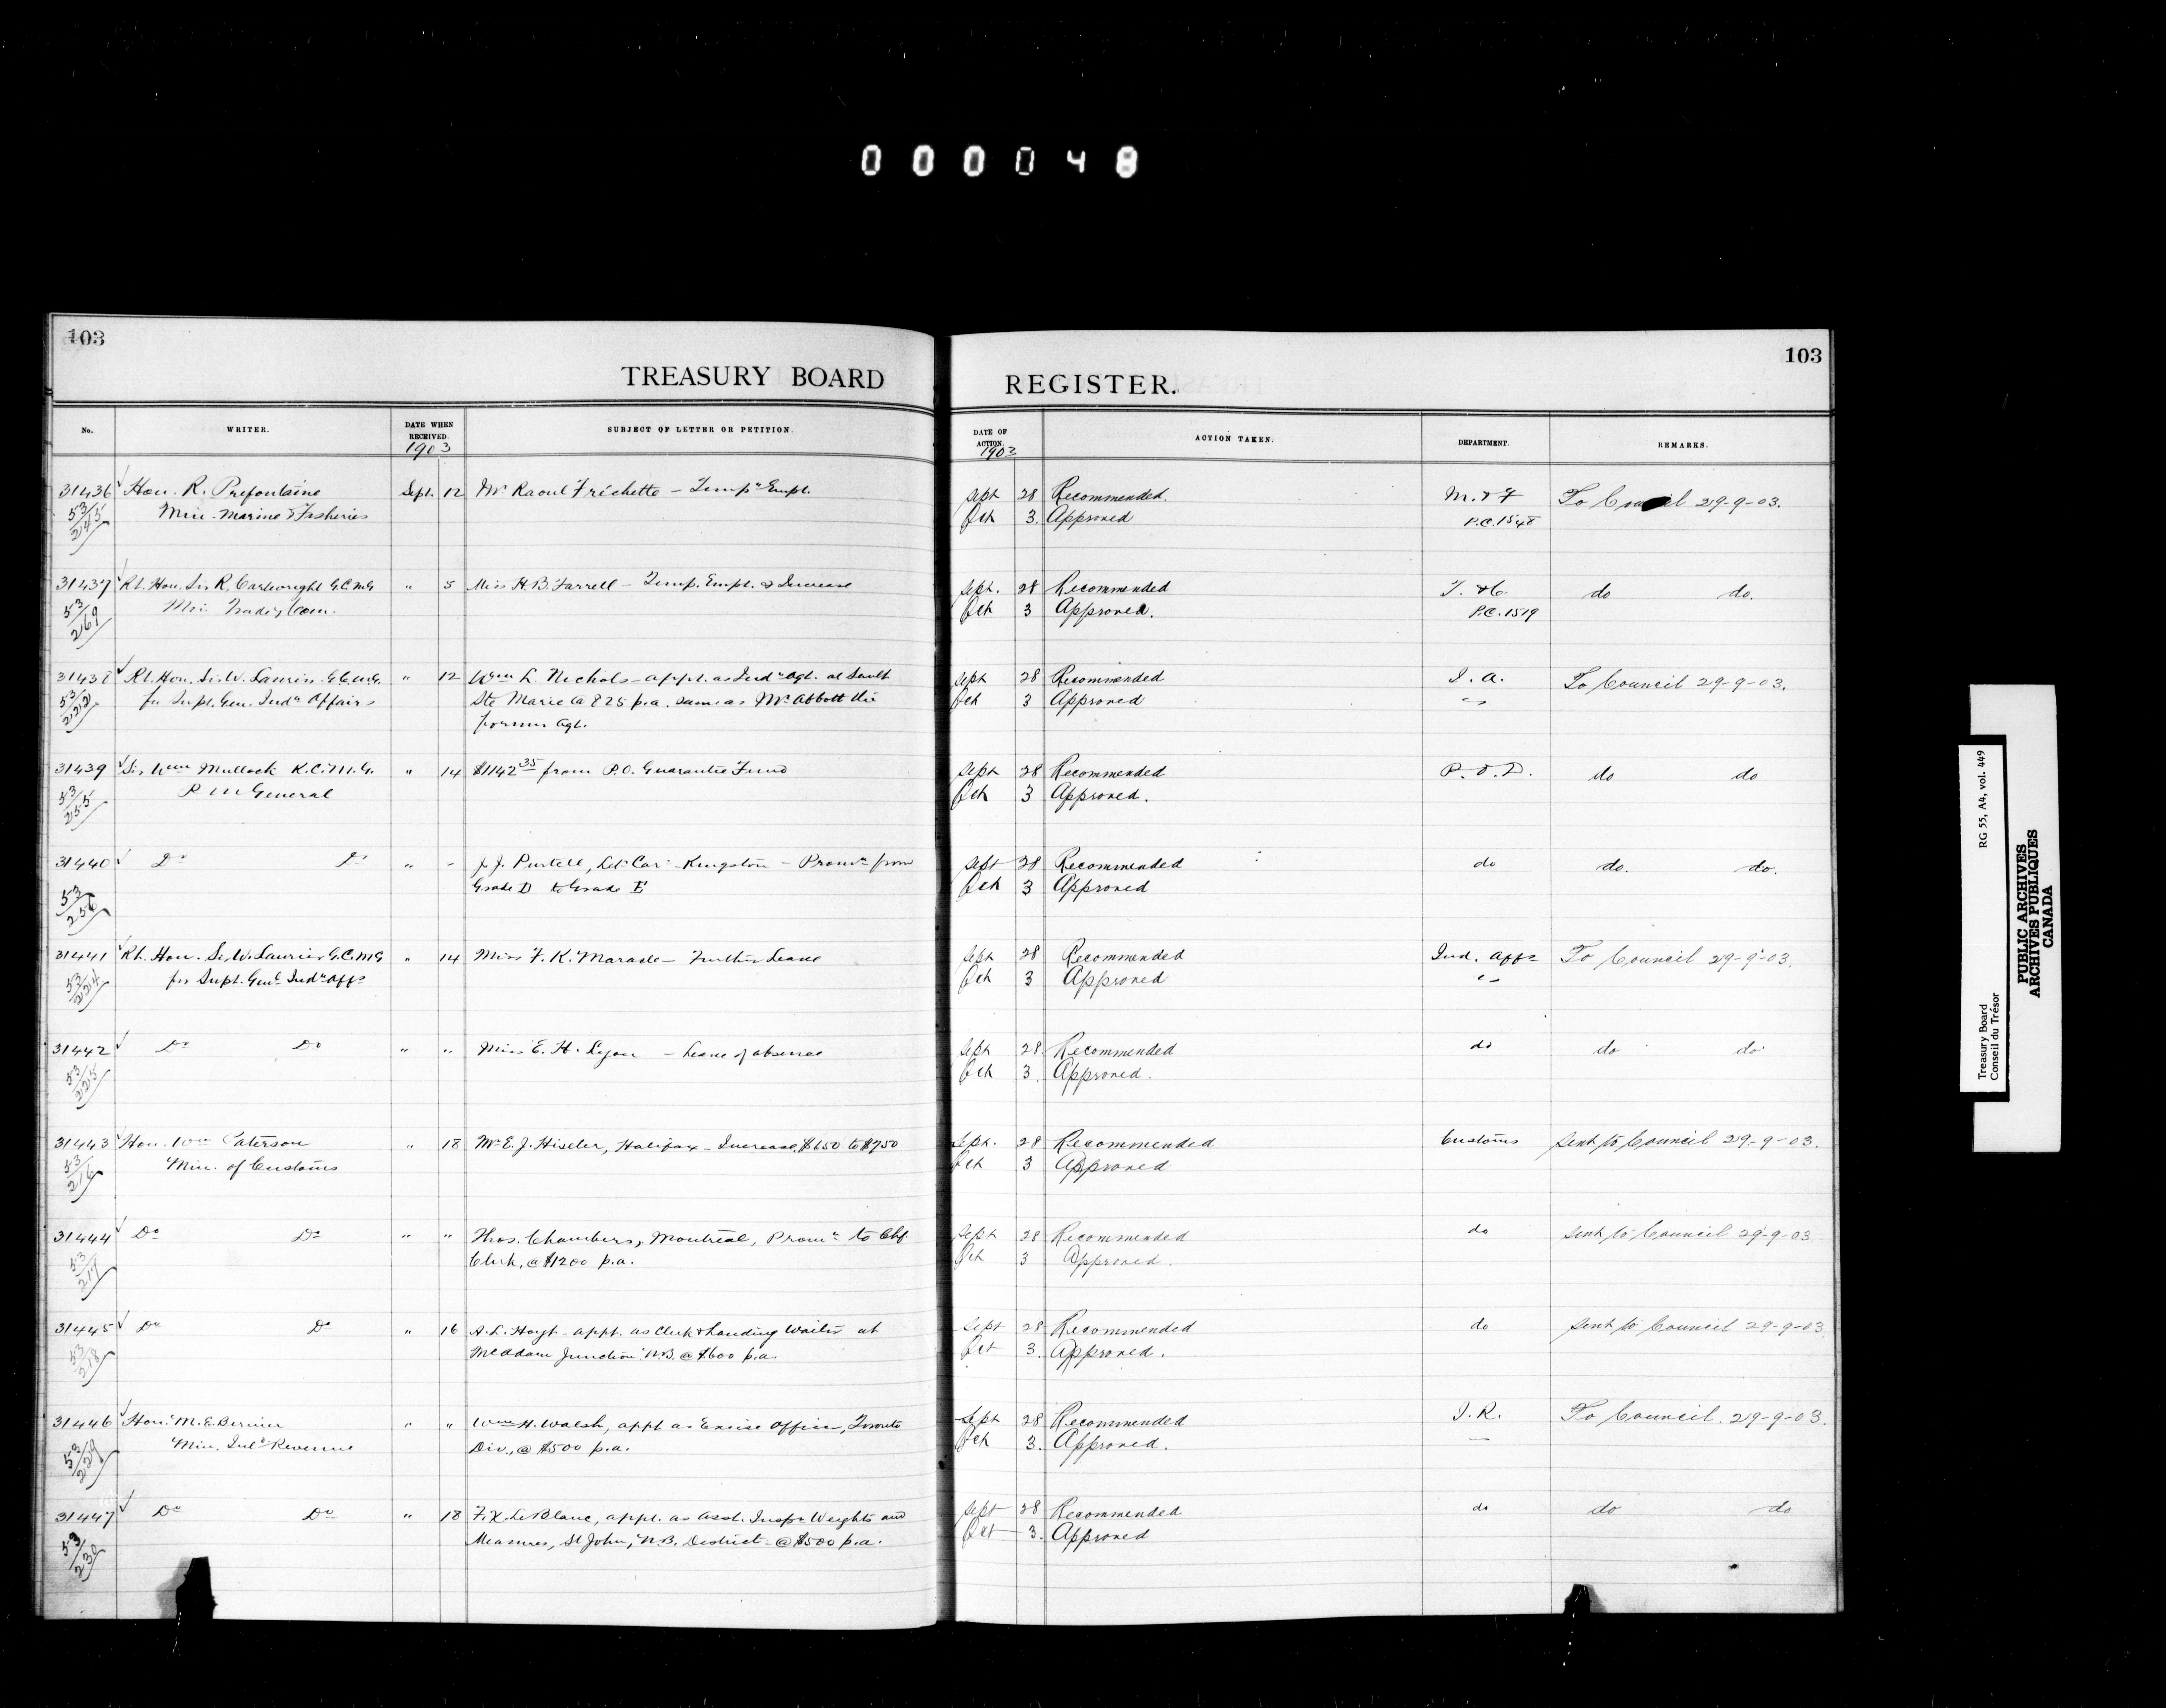 000048
103
TREASURY BOARD
REGISTER.
103
No.
WRITER.
DATE WHEN RECEIVED.
1903
SUBJECT OF LETTER OR PETITION.
DATE OF ACTION.
1903
ACTION TAKEN.
DEPARTMENT.
REMARKS.
31436 Hon. R. Prefontaine Sept. 12 Mr Raoul Fréchette – Tempy Empt. Sept 28 Recommended. M. & F To Council 29-9-03.
53/245 Min. Marine & Fisheries Oct 3. Approved P.C. 1548
31437 Rt. Hon. Sir R. Cartwright G.C.M.G " 5 Miss H. B. Farrell – Temp. Empt. & Increase Sept. 28 Recommended T. & C. do do.
53/269 Min. Trade & Com. Oct 3 Approved. P.C. 1519
31438 Rt. Hon. Sir W. Laurier G.C.M.G. " 12 Wm L. Nichols – appt. as Indn Agt. at Sault Sept 28 Recommended I. A. To Council 29-9-03.
53/222 for Supt. Gen. Indn Affairs Ste Marie @ 825 p.a. same as Mr Abbott the Oct 3 Approved "
former Agt.
31439 Sir Wm Mullock K.C.M.G. " 14 $1142.35 from P.O. Guarantee Fund Sept 28 Recommended P.O.D. do do
53/255 P M General Oct 3 Approved.
31440 Do Do " " J. J. Purtell, Letr Carr – Kingston – Promn from Sept 28 Recommended do do. do.
53/256 Grade D to Grade E Oct 3 Approved
31441 Rt. Hon. Sir W. Laurier G.C.M.G " 14 Miss F. K. Maracle – Further Leave Sept 28 Recommended Ind. Affs To Council 29-9-03.
53/224 for Supt. Genl Indn Affs Oct 3 Approved "
31442 Do Do " " Miss E. H. Lyon – Leave of absence Sept 28 Recommended do do do
53/225 Oct 3. Approved.
31443 Hon. Wm Paterson " 18 Mr E. J. Hiseler, Halifax – Increase, $650 to $750 Sept. 28 Recommended Customs sent to Council 29-9-03.
53/216 Min. of Customs Oct 3 Approved
31444 Do Do " " Thos. Chambers, Montreal, Promn to Chf Sept 28 Recommended do sent to Council 29-9-03
53/217 Clerk, @ $1200 p.a. Oct 3 Approved.
31445 Do Do " 16 A. L. Hoyt – appt. as Clerk & Landing Waiter at Sept 28 Recommended do sent to Council 29-9-03
53/218 McAdam Junction N.B. @ $600 p.a. Oct 3. Approved.
31446 Hon. M. E. Bernier " " Wm H. Walsh, appt as Excise Officer, Toronto Sept 28 Recommended I. R. To Council. 29-9-03.
53/229 Min. Inld Revenue Div., @ $500 p.a. Oct 3. Approved. "
31447 Do Do " 18 F. X. LeBlanc, appt. as Asst. Inspr Weights and Sept 28 Recommended do do do
53/230 Measures, St John, N.B. District – @ $500 p.a. Oct 3. Approved
Treasury Board RG 55, A4, vol. 449
Conseil du Trésor
PUBLIC ARCHIVES
ARCHIVES PUBLIQUES
CANADA